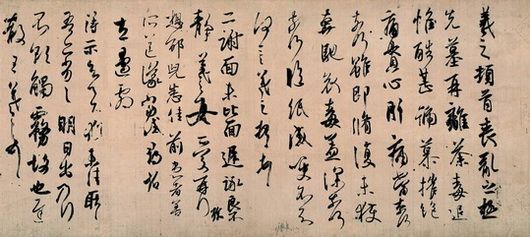 羲之頓首喪亂之極
先墓再離荼毒追
惟酷甚號慕摧絕
痛貫心肝痛當奈何
奈何雖即脩復未獲
奔馳哀毒益深奈何
奈何臨紙感哽不知
何言羲之頓首頓首
二謝面未比面遲詠良
不靜羲之女愛再拜
想邰兒悉佳前患者善
所送議當試尋省
左邊劇
得示知足下猶未佳耿
耿吾亦劣劣明日出乃行
不欲觸霧故也遲
散王羲之頓首